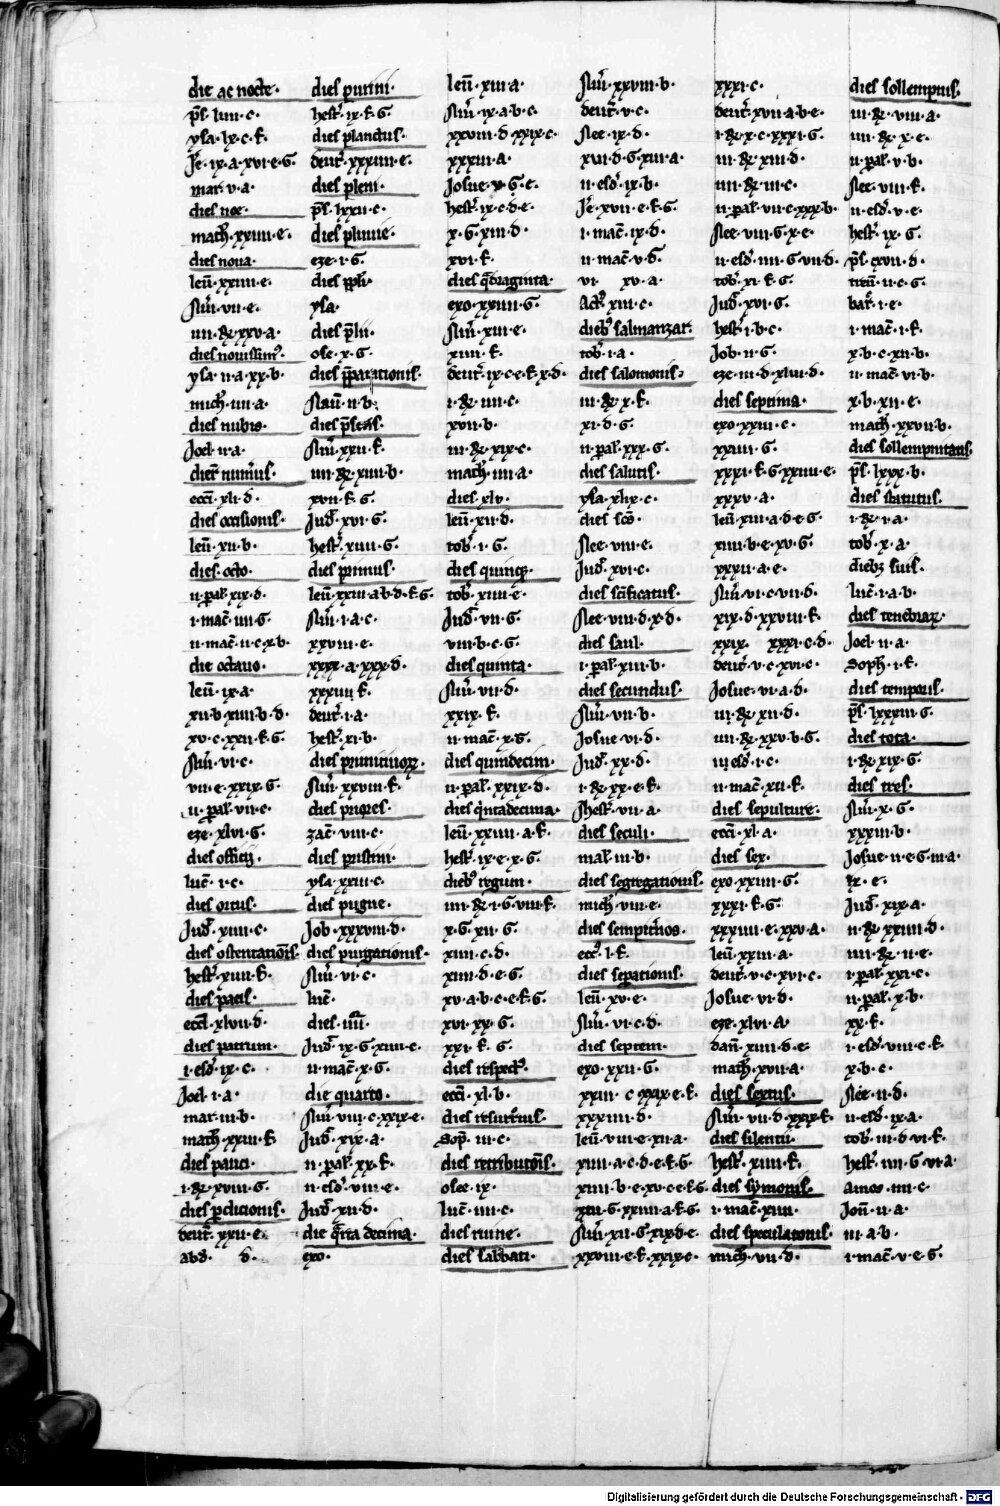 die ac nocte.
ps. liiii. c.
ysa. lx. c. f.
Je. ix. a. xvi. e. G.
mar. v. a.
dies noe.
math. xxiiii. e.
dies noua.
leū. xxiii. e.
Nūi. vii. e.
iiii. R. xxv. a.
dies nouissim9.
ysa. ii. a. xx. b.
mich. iiii. a.
dies nubis.
Joel. ii. a.
dier. numus.
ecci. xli. d.
dies occisionis.
leū. xii. b.
dies. octo.
ii. pal. xix. d.
i. mac. iiii. G.
ii. mac. ii. c. x. b.
die octauo.
leū. ix. a.
xii. b. xiiii. b. d.
xv. c. xxii. f. G.
Nūi. vi. c.
vii. e. xxix. G.
ii. pal. vii. c.
eze. xlvi. G.
dies officij.
luc. i. c.
dies ortus.
Jud. xiiii. c.
dies ostentacois.
hest. xiiii. f.
dies pacis.
ecci. xlvii. d.
dies patrum.
i. esd. ix. c.
Joel. i. a.
mar. iii. b.
math. xxiii. f.
dies pauci.
i. R. xviii. G.
dies pdicionis.
deut. xxii. e.
abd. d.
dies purim.
hest. ix. f. G.
dies planctus.
deut. xxxiiii. e.
dies pleni.
ps. lxxii. c.
dies pluuie.
eze. i. G.
dies ppli.
ysa.
dies plii.
ose. x. G.
dies pparationis.
Naū. ii. b.
dies pscas.
Nūi. xxii. f.
iiii. R. xiiii. b.
xvii. f. G.
Jud. xvi. G.
hest. xiiii. G.
dies primus.
leū. xxiii. a. b. d. f. G.
Nūi. i. a. c.
xxviii. e.
xxix. a. xxx. d.
xxxiii. f.
deut. i. a.
hest. xi. b.
dies primitiuor.
Nūi. xxviii. f.
dies priores.
zac. viii. c.
dies pristini.
ysa. xxiii. c.
dies pugne.
Job. xxxviii. d.
dies purgationis.
Nūi. vi. c.
luc.
dies. iiii.
Jud. ix. G. xiiii. c.
ii. mac. x. G.
die quarto.
Nūi. viii. c. xxix. e.
Jud. xix. a.
ii. pal. xx. f.
ii. esd. viii. e.
Jud. xii. d.
die qrta decima.
exo.
leū. xiii. a.
Nūi. ix. a. b. c.
xxviii. d. xxix. c.
xxxiii. a.
Josue. x. G. e.
hest. ix. c. d. e.
x. G. xiii. d.
xvi. f.
dies qdraginta.
exo. xxiiii. G.
Nūi. xiii. e.
xiiii. f.
deut. ix. c. e. f. x. d.
i. R. iiii. c.
xvii. b.
iii. R. xix. c.
math. iiii. a.
dies. xlv.
leū. xii. d.
tob. i. G.
dies quinq.
tob. xiiii. e.
Jud. vii. G.
viii. b. c. G.
dies quinta.
Nūi. vii. d.
xxix. f.
ii. mac. x. G.
dies quindecim.
ii. pal. xxix. d.
dies qntadecima.
leū. xxiiii. a. f.
hest. ix. e. x. G.
dieb9 regum.
iiii. R. i. G. viii. f.
x. G. xii. G.
xiii. c. d.
xiiii. d. e. G.
xv. a. b. c. e. f. G.
xvi. xx. G.
xxi. f. G.
dies respect9.
ecci. xl. b.
dies resurrcuis.
Sop. iii. c.
dies retributois.
osee. ix.
luc. iiii. c.
dies ruine.
dies sabbati.
Nūi. xxviii. b.
deut. v. c.
Nee. ix. d.
xvi. d. G. xiii. a.
ii. esd. ix. b.
Je. xvii. e. f. G.
i. mac. ix. d.
ii. mac. v. d.
vi. xv. a.
Act9 xiii. c.
dieb9 salmanzar.
tob. i. a.
dies salomonis.
iii. R. x. f.
xi. d. G.
ii. pal. xxx. G.
dies salutis.
ysa. xlix. c.
dies sco.
Nee. viii. e.
Jud. xvi. c.
dies scificatus.
Nee. viii. d. x. d.
dies saul.
i. pal. xiii. b.
dies secundus.
Nūi. vii. b.
Josue vi. d.
Jud. xx. d.
i. R. xx. e. f.
hest. vii. a.
dies seculi.
mal. iii. b.
dies segregationis.
mich. vii. e.
dies sempithos.
ecc9. i. f.
dies sepationis.
leū. xv. e.
Nūi. vi. c. d.
dies septem.
exo. xxii. G.
xxiii. c xxix. e. f.
xxxiiii. d.
leū. viii. e. xii. a.
xiiii. a. c. d. e. f. G.
xiiii. b. e. xv. c. e. f. G.
xxii. G. xxiiii. a. f. G.
Nūi. xii. G. xix. d. e.
xxviii. e. f. xxix. e.
xxxi. c.
deut. xvii. a. b. e.
i. R. x. c. xxxi. G.
iii. R. xiii. d.
iiii. R. iii. c.
ii. pal. vii. c. xxx. b.
Nee. viii. G. x. e.
ii. esd. iiii. G. vii. d.
tob. xi. f. G.
Jud. xvi. G.
hest. i. b. c.
Job. ii. G.
eze. iii. d. xliii. d.
dies septima.
exo. xxiii. c.
xxiiii. G.
xxxi. f. G. xxiiii. e.
xxxv. a.
leū. xiii. a. d. e. G.
xiiii. b. e. xv. G.
xxxii. a. e.
Nūi. vi. c. vii. d.
xix. d. xxviii. f.
xxix. xxxi. c. d.
deut. v. c. xvi. c.
Josue. vi. a. d.
iii. R. xii. d.
iiii. R. xxv. b. G.
ii esd. i. c.
ii. mac. xii. f.
dies sepulture.
ecci. xl. a.
dies sex.
exo. xxiiii. G.
xxxi. f. G.
xxxiiii. e. xxv. a.
leū. xxiii. a.
deut. v. c. xvi. c.
Josue. vi. d.
eze. xlvi. a.
dan. xiiii. d. e.
math. xvii. a.
dies sextus.
Nūi. vii. d. xxix. f.
dies silentii.
hest. xiiii. f.
dies symonis.
i. mac. xiiii.
dies speculatonis.
mich. vii. d.
dies sollempnis.
iii. R. viii. a.
iiii. R. x. e.
ii. pal. v. b.
Nee. viii. f.
ii. esd. v. e.
hest. ix. G.
ps. cxvii. d.
tren. ii. c. G.
bar. i. e.
i. mac. i. f.
x. b. c. xii. b.
ii. mac. vi. b.
x. b. xii. e.
math. xxvii. b.
dies sollempnitatis.
ps. lxxx. b.
dies statutus.
i. R. i. a.
tob. x. a.
diebz suis.
luc. i. a. b.
dies tenebrar.
Joel. ii. a.
Soph. i. f.
dies temporis.
ps. lxxxiii. G.
dies tota.
i. R. xix. G.
dies tres.
Nūi. x. G.
xxxiii. b.
Josue. ii. e. G. iii. a.
ix. e.
Jud. xix. a.
ii. R. xxiiii. d.
iiii. R. ii. e.
i. pal. xxi. c.
ii. pal. x. b.
xx. f.
i. esd. viii. c. f.
x. b. c.
Nee. ii. d.
ii. esd. ix. a.
tob. iii. d. vi. f.
hest. iiii. G. vi. a.
Amos. iiii. c.
Jon. ii. a.
iii. a. b.
i. mac. v. e. G.
Digitalisierung gefördert durch die Deutsche Forschungsgemeinschaft - DFG